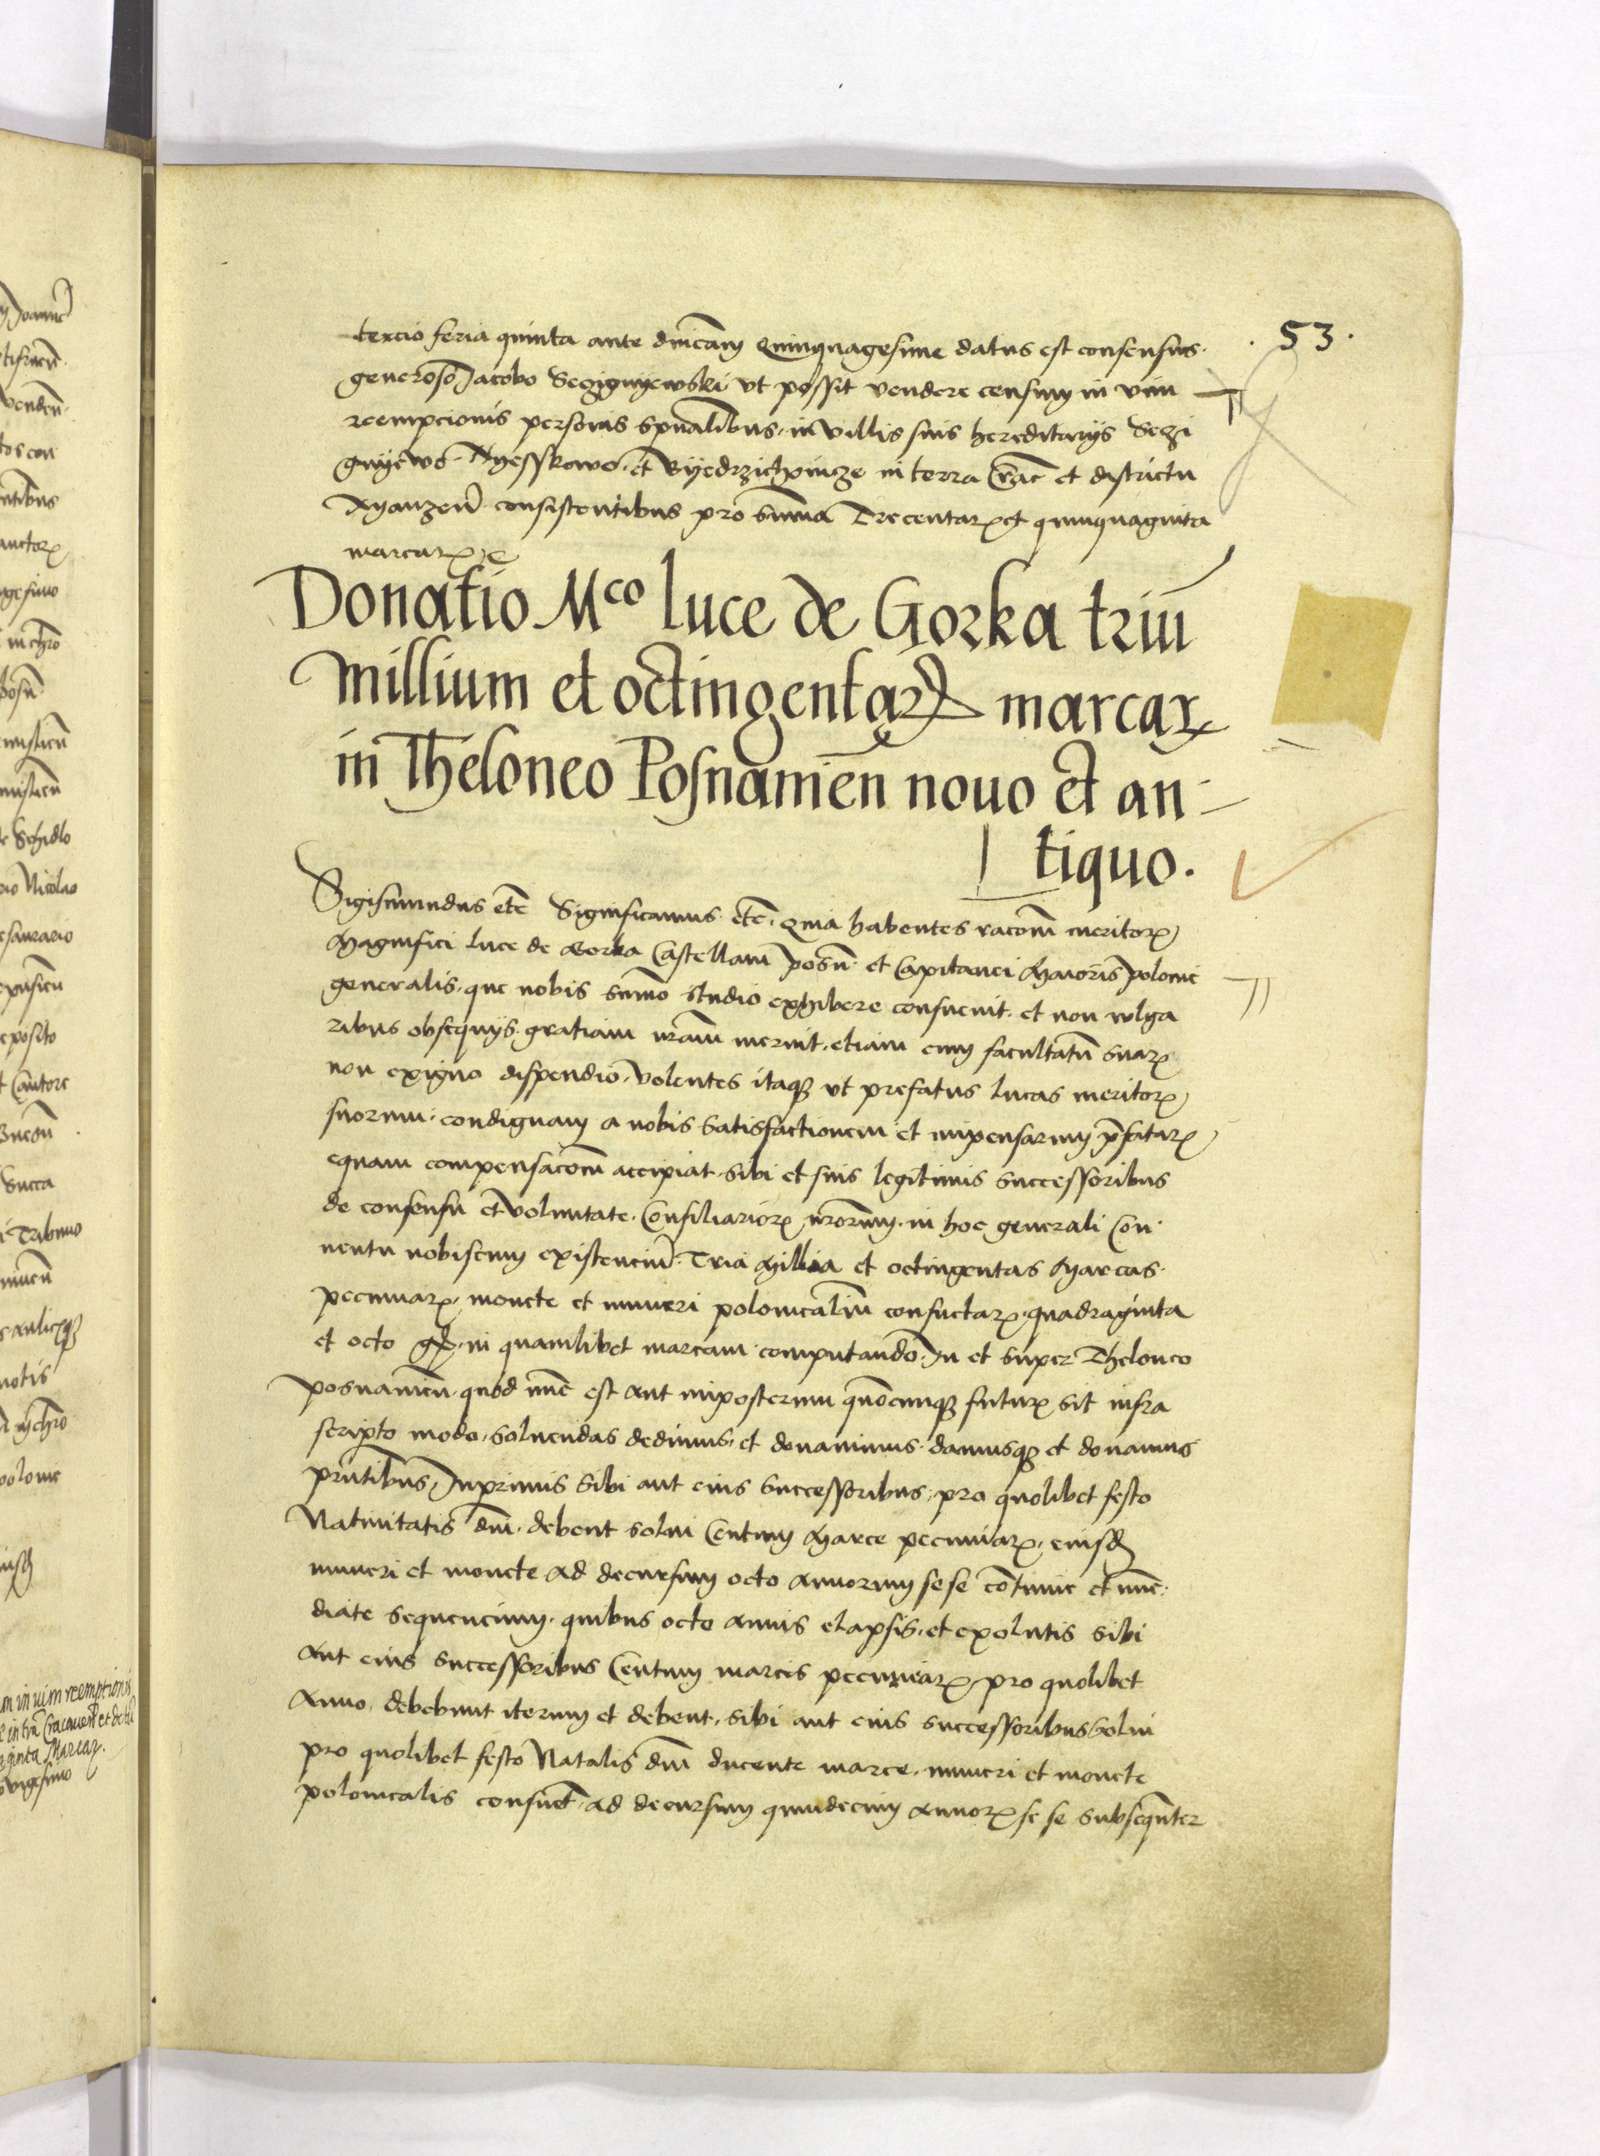 . 53 .
tercio feria quinta ante dnicam Quinquagesime datus est consensus
generoso Jacobo ut possit vendere censum in vim
reempcionis personis spualibus in villis suis hereditarys Sczi
et in terra Crac et districtu
consistentibus pro summa Trecentaꝝ et quinquaginta
marcarꝝ
Donatio Mco luce de Gorka triu
millium et octingentarꝝ marcarꝝ
in Theloneo Posnamen nouo et an-
tiquo.
Sigismundus etc Significamus etc. Quia habentes racom meritorꝝ
Magnifici luce de Gorka Castellani posn et Capitanei Maioris polonie
generalis, que nobis summo studio exhibere consuevit et non vulga
ribus obsequys gratiam nram meruit, etiam cum facultatu suarꝝ
non exiguo dispendio, volentes itaqꝫ ut prefatus lucas meritorꝝ
suorum condignam a nobis satisfactionem et impensarum pfatarꝝ
equam compensacom accipiat sibi et suis legitimis successoribus
de consensu et voluntate Consiliariorꝝ nrorum in hoc generali Con
uentu nobiscum existenciu Tria Millia et octingentas Marcas
pecuniarꝝ monete et numeri polonicaliu consuetarꝝ quadraginta
et octo in quamlibet marcam computando, In et super Theloneo
posnamien, quod nuc est aut imposterum quocunqꝫ futurꝝ sit infra
scripto modo, soluendas dedimus et donauimus damusqꝫ et donamus
pntibus, Inprimis sibi aut eius successoribus pro quolibet festo
Natiuitatis dni debent solui Centum Marce pecuniarꝝ eiusd
numeri et monete ad decursum octo annorum sese continue et imme
diate sequencium, quibus octo annis elapsis et exolutis sibi
aut eius successoribus Centum marcis pecuniarꝝ pro quolibet
anno, debebunt iterum et debent, sibi aut eius successoribus solui
pro quolibet festo Natalis dni ducente marce, numeri et monete
polonicalis consuet ad decursum quindecim annorꝝ se se subsequnter